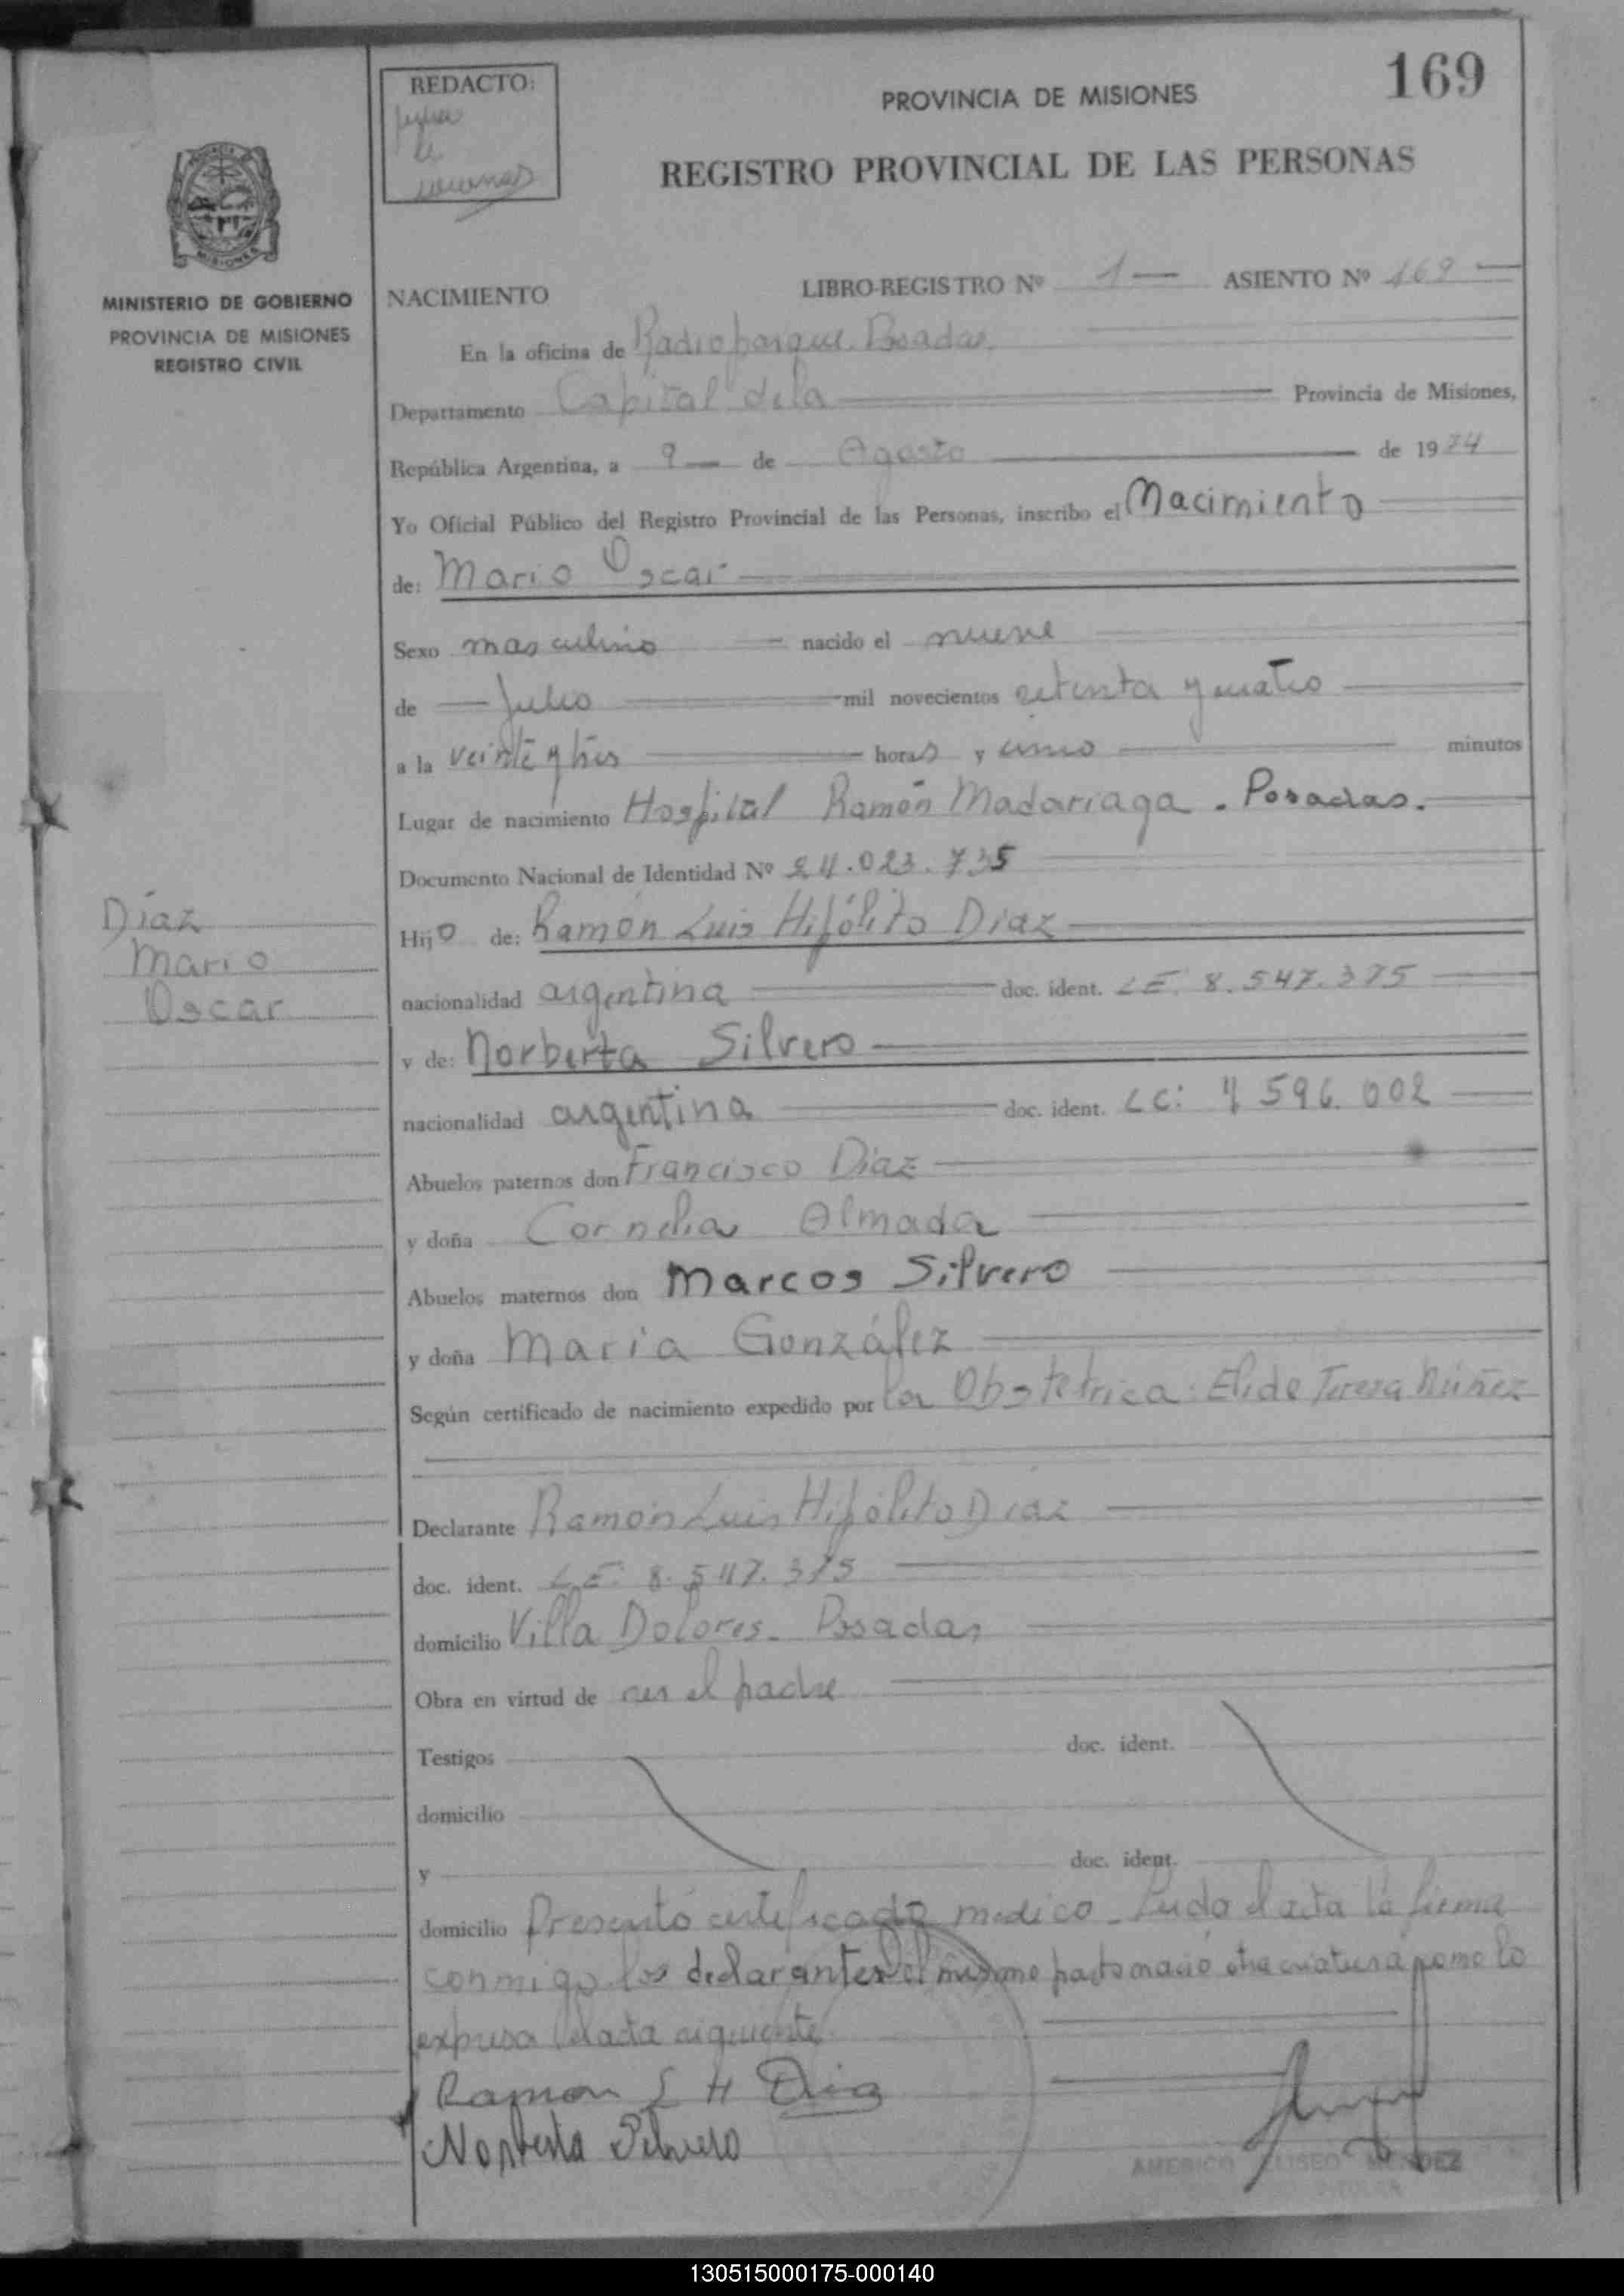 169
REDACTO:
PROVINCIA DE MISIONES
REGISTRO PROVINCIAL DE LAS PERSONAS
MISIONES
MINISTERIO DE GOBIERNO
PROVINCIA DE MISIONES
REGISTRO CIVIL
NACIMIENTO LIBRO-REGISTRO Nº 1 — ASIENTO Nº 169
En la oficina de Radioparque Posadas
Departamento Capital de la Provincia de Misiones,
República Argentina, a 9 de Agosto de 1974
Yo Oficial Público del Registro Provincial de las Personas, inscribo el Nacimiento
de: Mario Oscar
Sexo masculino nacido el nueve
de Julio mil novecientos setenta y cuatro
a la veinte y tres horas y uno minutos
Lugar de nacimiento Hospital Ramón Madariaga - Posadas.
Documento Nacional de Identidad Nº 24.023.735
Díaz
Mario
Oscar
Hijo de: Ramón Luis Hipólito Díaz
nacionalidad argentina doc. ident. LE. 8.547.375
y de: Norberta Silvero
nacionalidad argentina doc. ident. LC: 596.002
Abuelos paternos don Francisco Díaz
y doña Cornelia Almada
Abuelos maternos don Marcos Silvero
y doña María González
Según certificado de nacimiento expedido por la Obstetrica: Elide Teresa Núñez
Declarante Ramón Luis Hipólito Díaz
doc. ident. LE: 8.547.375
domicilio Villa Dolores - Posadas
Obra en virtud de ser el padre
Testigos doc. ident.
domicilio
y doc. ident.
domicilio Presentó certificado medico - Leida el acta la firma
conmigo los declarantes parto nació otra criatura como lo
expresa el acta siguiente
Ramon L H Diaz
Norberta Silvero
AMERICO ELISEO MENDEZ
130515000175-000140